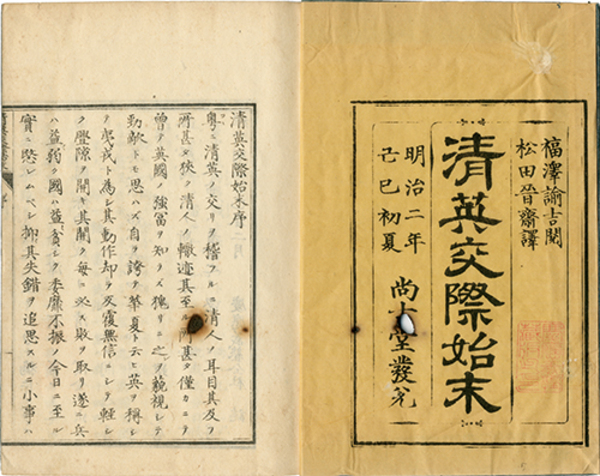 福澤諭吉閲
松田晉齋譯
清英交際始末
明治二年
己巳初夏
尚古堂發兌
清英交際始末序
粤ニ清英ノ交リヲ稽フルニ清人ノ耳目其及フ
所甚タ狹ク清人ノ轍迹其至ル所甚タ僅カニシテ
曾テ英國ノ強冨ヲ知ラス猥リニ之ヲ藐視シテ
勁敵トモ思ハス自ラ誇テ華夏ト云ヒ英ヲ稱シ
テ戎ト為シ其動作却テ反覆無信ニシテ輕シ
ク釁隙ヲ開キ其開ク毎ニ必ス敗ヲ取リ遂ニ兵
ハ益弱ク國ハ益貧シク委靡不振ノ今日ニ至ル
實ニ愍レムベシ抑其失錯ヲ追思スルニ小事ハ